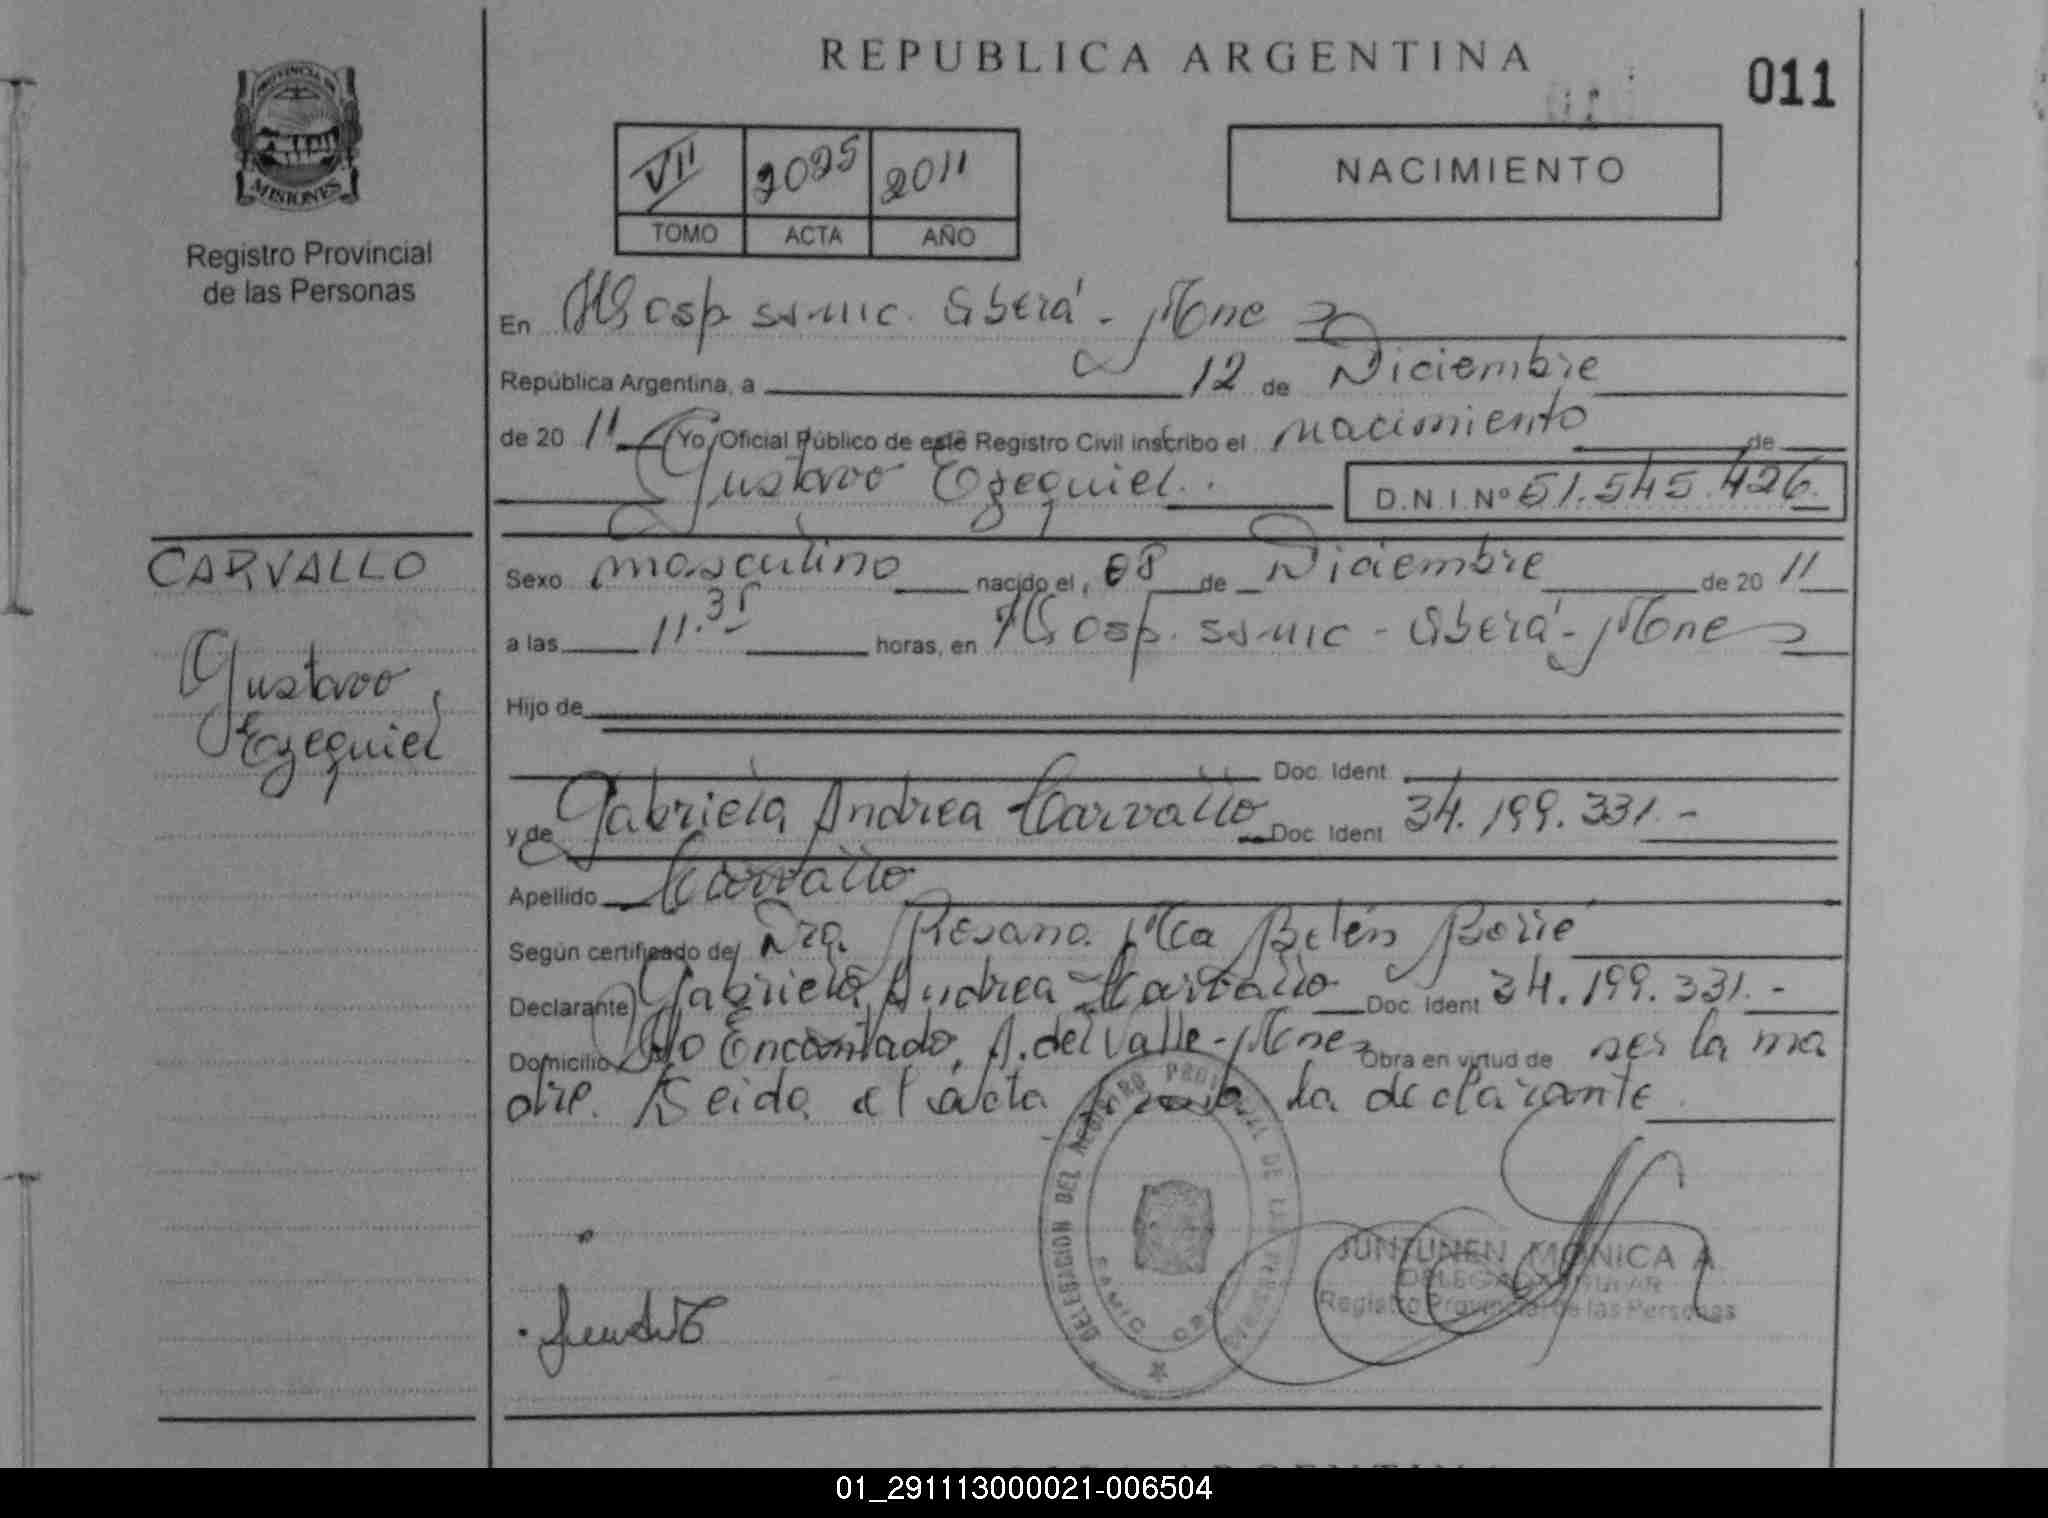 REPUBLICA ARGENTINA
011
PROVINCIA DE
MISIONES
Registro Provincial
de las Personas
VII 2025 2011
TOMO ACTA AÑO
NACIMIENTO
En Hosp. ssmic. Oberá - Mnes
República Argentina, a 12 de Diciembre
de 20 11 Yo, Oficial Público de este Registro Civil inscribo el nacimiento de
Gustavo Ezequiel.. D.N.I. Nº 51.545.426.
CARVALLO
Gustavo
Ezequiel
Sexo masculino nacido el, 08 de Diciembre de 20 11
a las 11.35 horas, en Hosp. ssmic - Oberá - Mnes
Hijo de
Doc. Ident.
y de Gabriela Andrea Carvallo Doc. Ident. 34.199.331.-
Apellido Carvallo
Según certificado de Dra. Rosana Ma Belén
Declarante Gabriela Andrea Carvallo Doc. Ident 34.199.331.-
Domicilio Encantado, A. del Valle - Mnes Obra en virtud de ser la ma
dre. Leida el acta firma la declarante.
DELEGACION DEL REGISTRO PROVINCIAL DE LAS PERSONAS
JUNTUNEN MONICA A.
DELEGADA TITULAR
Registro Provincial de las Personas
REPUBLICA ARGENTINA
01_291113000021-006504